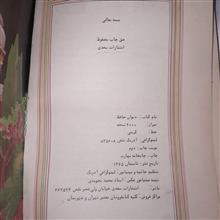 بسمه تعالی
حق چاپ محفوظ
انتشارات سعدی
نام کتاب: دیوان حافظ
تیراژ: ۲۰۰۰ نسخه
خط:
لیتوگرافی: آدریک تلفن
نوبت چاپ: دوم
چاپ: چاپخانه مهارت
تاریخ نشر: تابستان ۱۳۶۵
تنظیم حاشیه و مینیاتور: لیتوگرافی آدریک
تهیه مینیاتور عکس: استاد محمد تجویدی
ناشر: انتشارات سعدی خیابان ولی‌عصر تلفن
مراکز فروش: کلیه کتابفروشان معتبر تهران و شهرستان